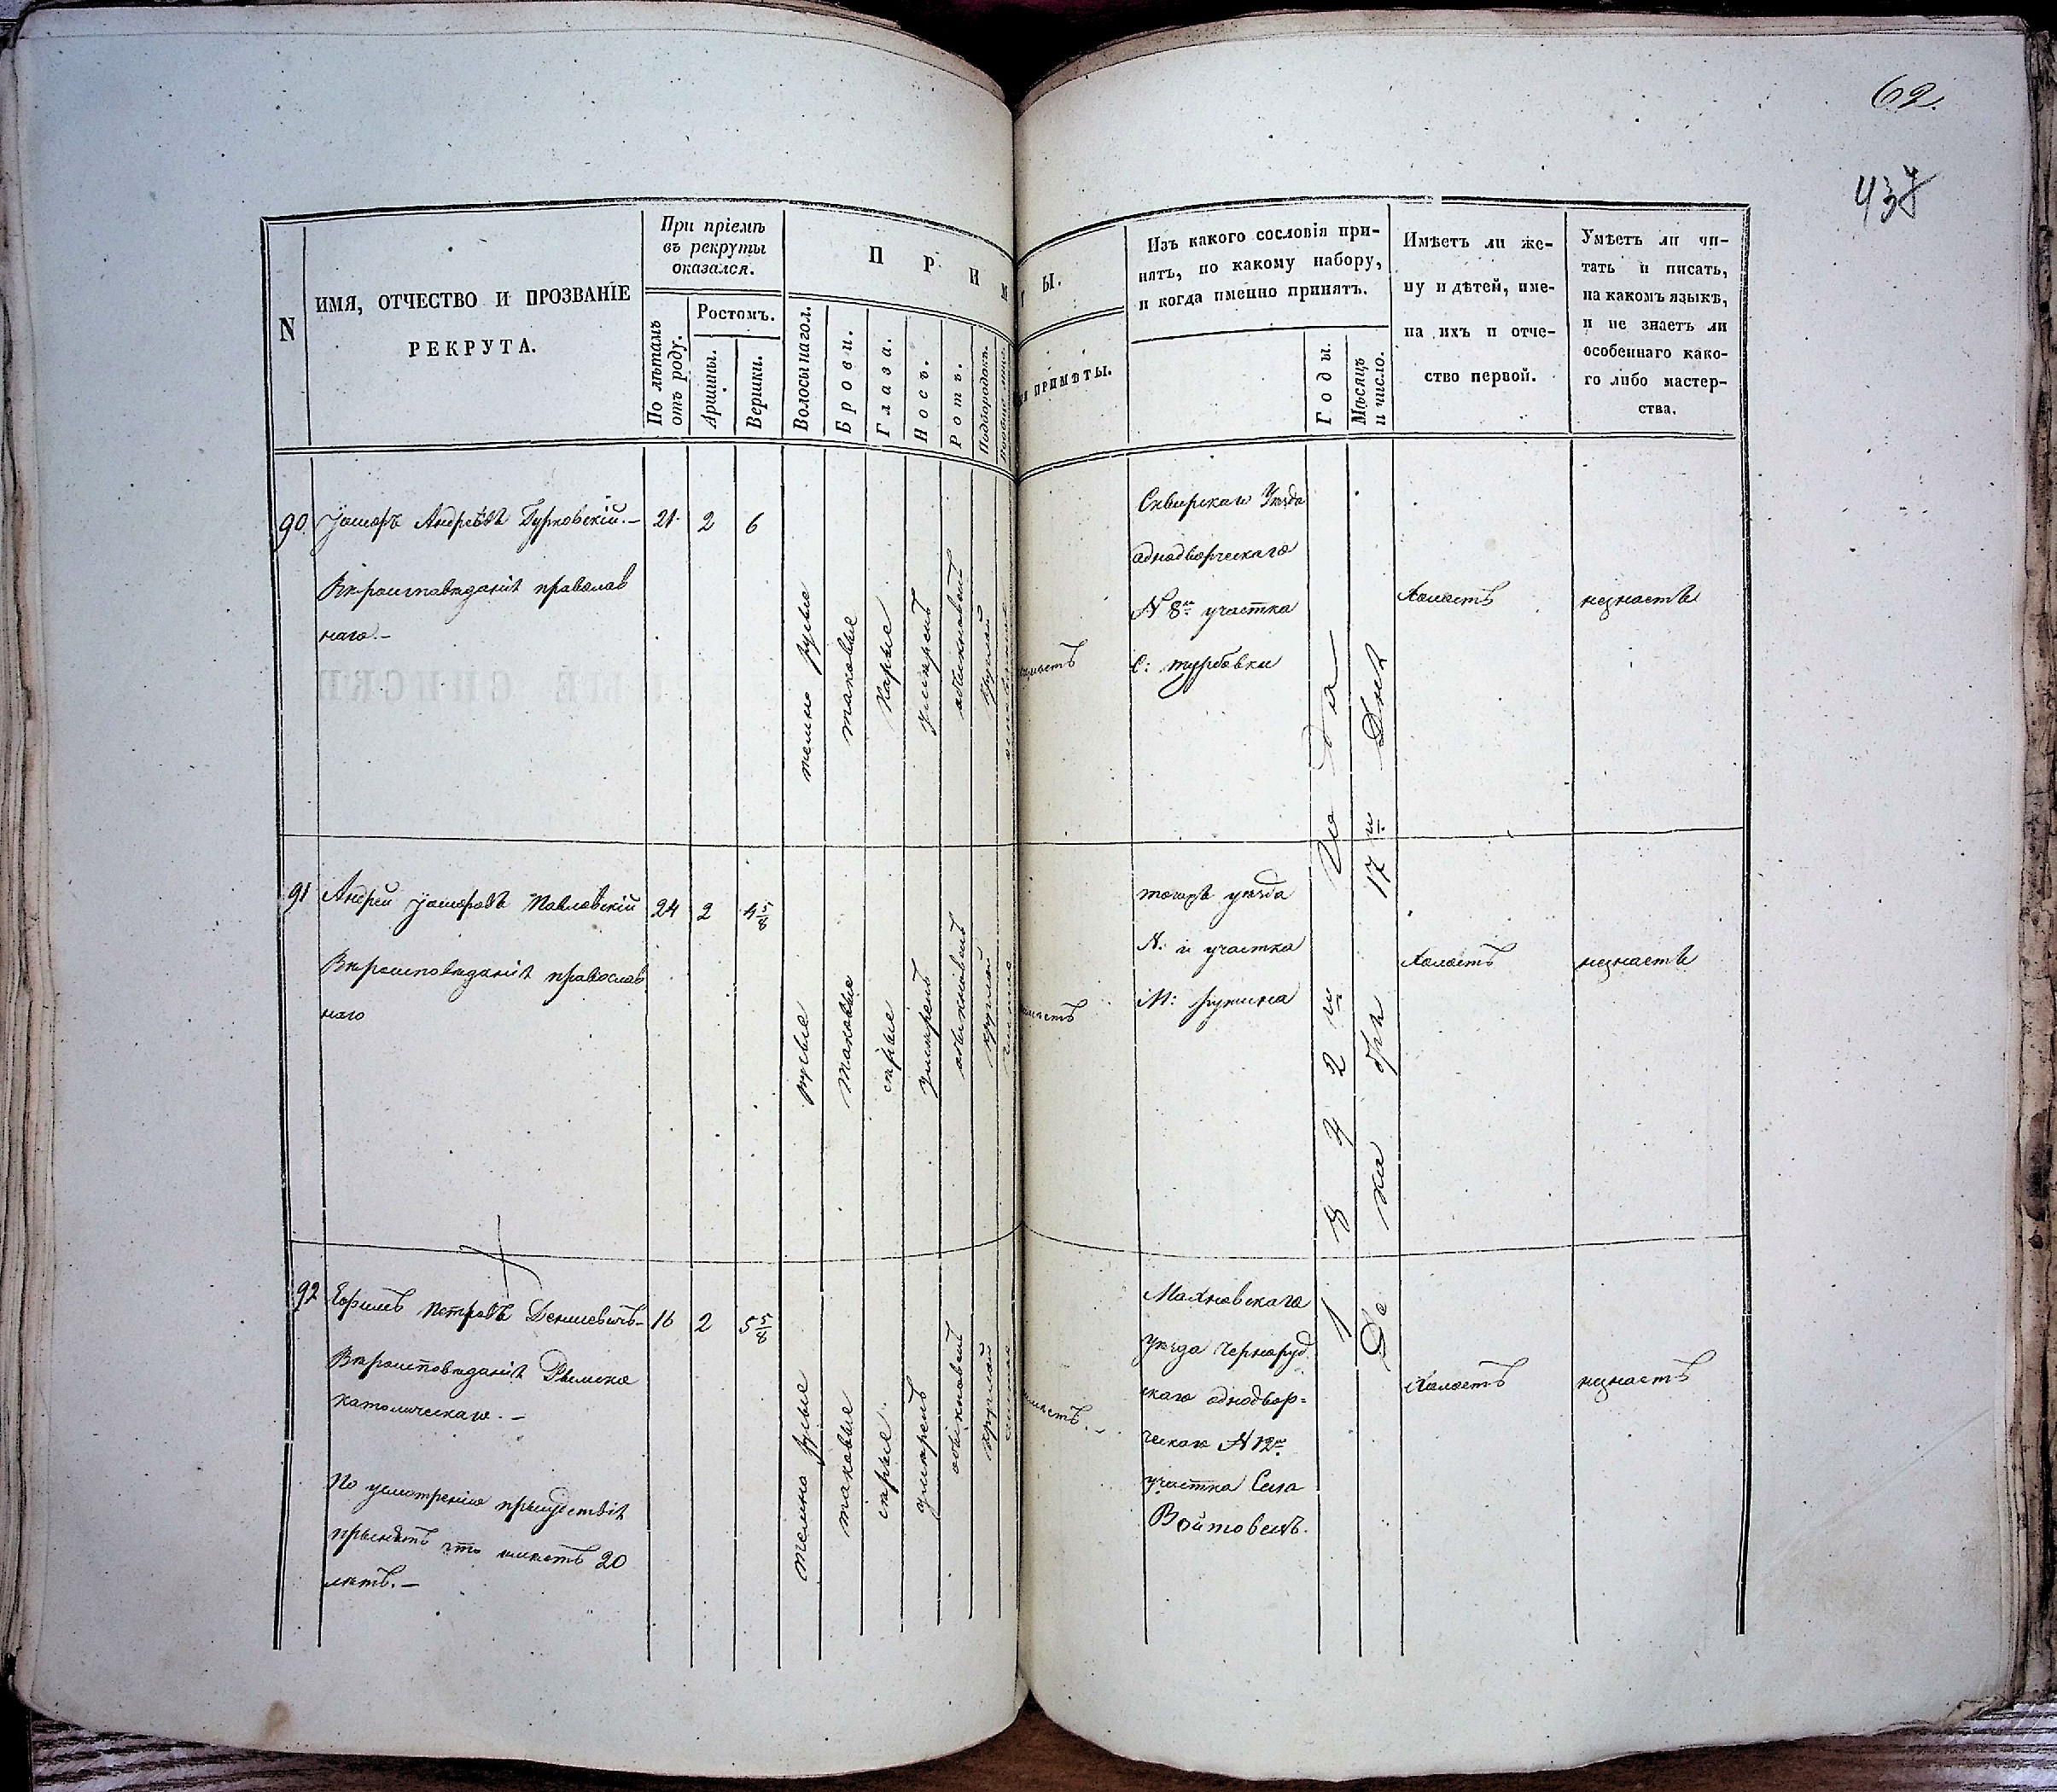 62.
437
N
ИМЯ, ОТЧЕСТВО И ПРОЗВАНІЕ
РЕКРУТА.
При пріемѣ
въ рекруты
оказался.
По лѣтамъ
отъ роду.
Ростомъ.
Аршины.
Вершки.
П Р И
Волосы на гол.
Брови.
Глаза.
Носъ.
Ротъ.
Подбородокъ.
Ы.
ПРИМѢТЫ.
Изъ какого сословія при-
нятъ, по какому набору,
и когда именно принятъ.
Годы.
Мѣсяцъ
и число.
Имѣетъ ли же-
ну и дѣтей, име-
на ихъ и отче-
ство первой.
Умѣетъ ли чи-
тать и писать,
на какомъ языкѣ,
и не знаетъ ли
особеннаго како-
го либо мастер-
ства.
90 Андреевъ Гурковскій.— 21. 2 6
Вѣроисповѣданія православ
наго.—
темно русые
таковые
Карые
умѣренъ
обыкновенъ
круглой
Сквирскаго Уѣзда
однодворческаго
N 8го участка
С: турбовки
Холостъ
незнаетъ
91 Андрей Павловскій 24 2 4 5/8
Вѣроисповѣданія православ
наго
русые
таковые
сѣрые
умѣренъ
обыкновенъ
круглой
тогожъ уѣзда
N: и участка
М: ружина
Холостъ
незнаетъ
1842го года
Декабря 17го дня
92 Ефимъ Петровъ Денисевичъ— 16 2 5 5/8
Вѣроисповѣданія Римско
католическаго.—
По усмотрѣнію присудствія
принятъ что имѣетъ 20
лѣтъ.—
темно русые
таковые
сѣрые
умѣренъ
обыкновенъ
круглой
Махновскаго
уѣзда Черноруд
скаго однодвор=
ческаго N 12го
участка Села
Войтовецъ.
Холостъ
незнаетъ